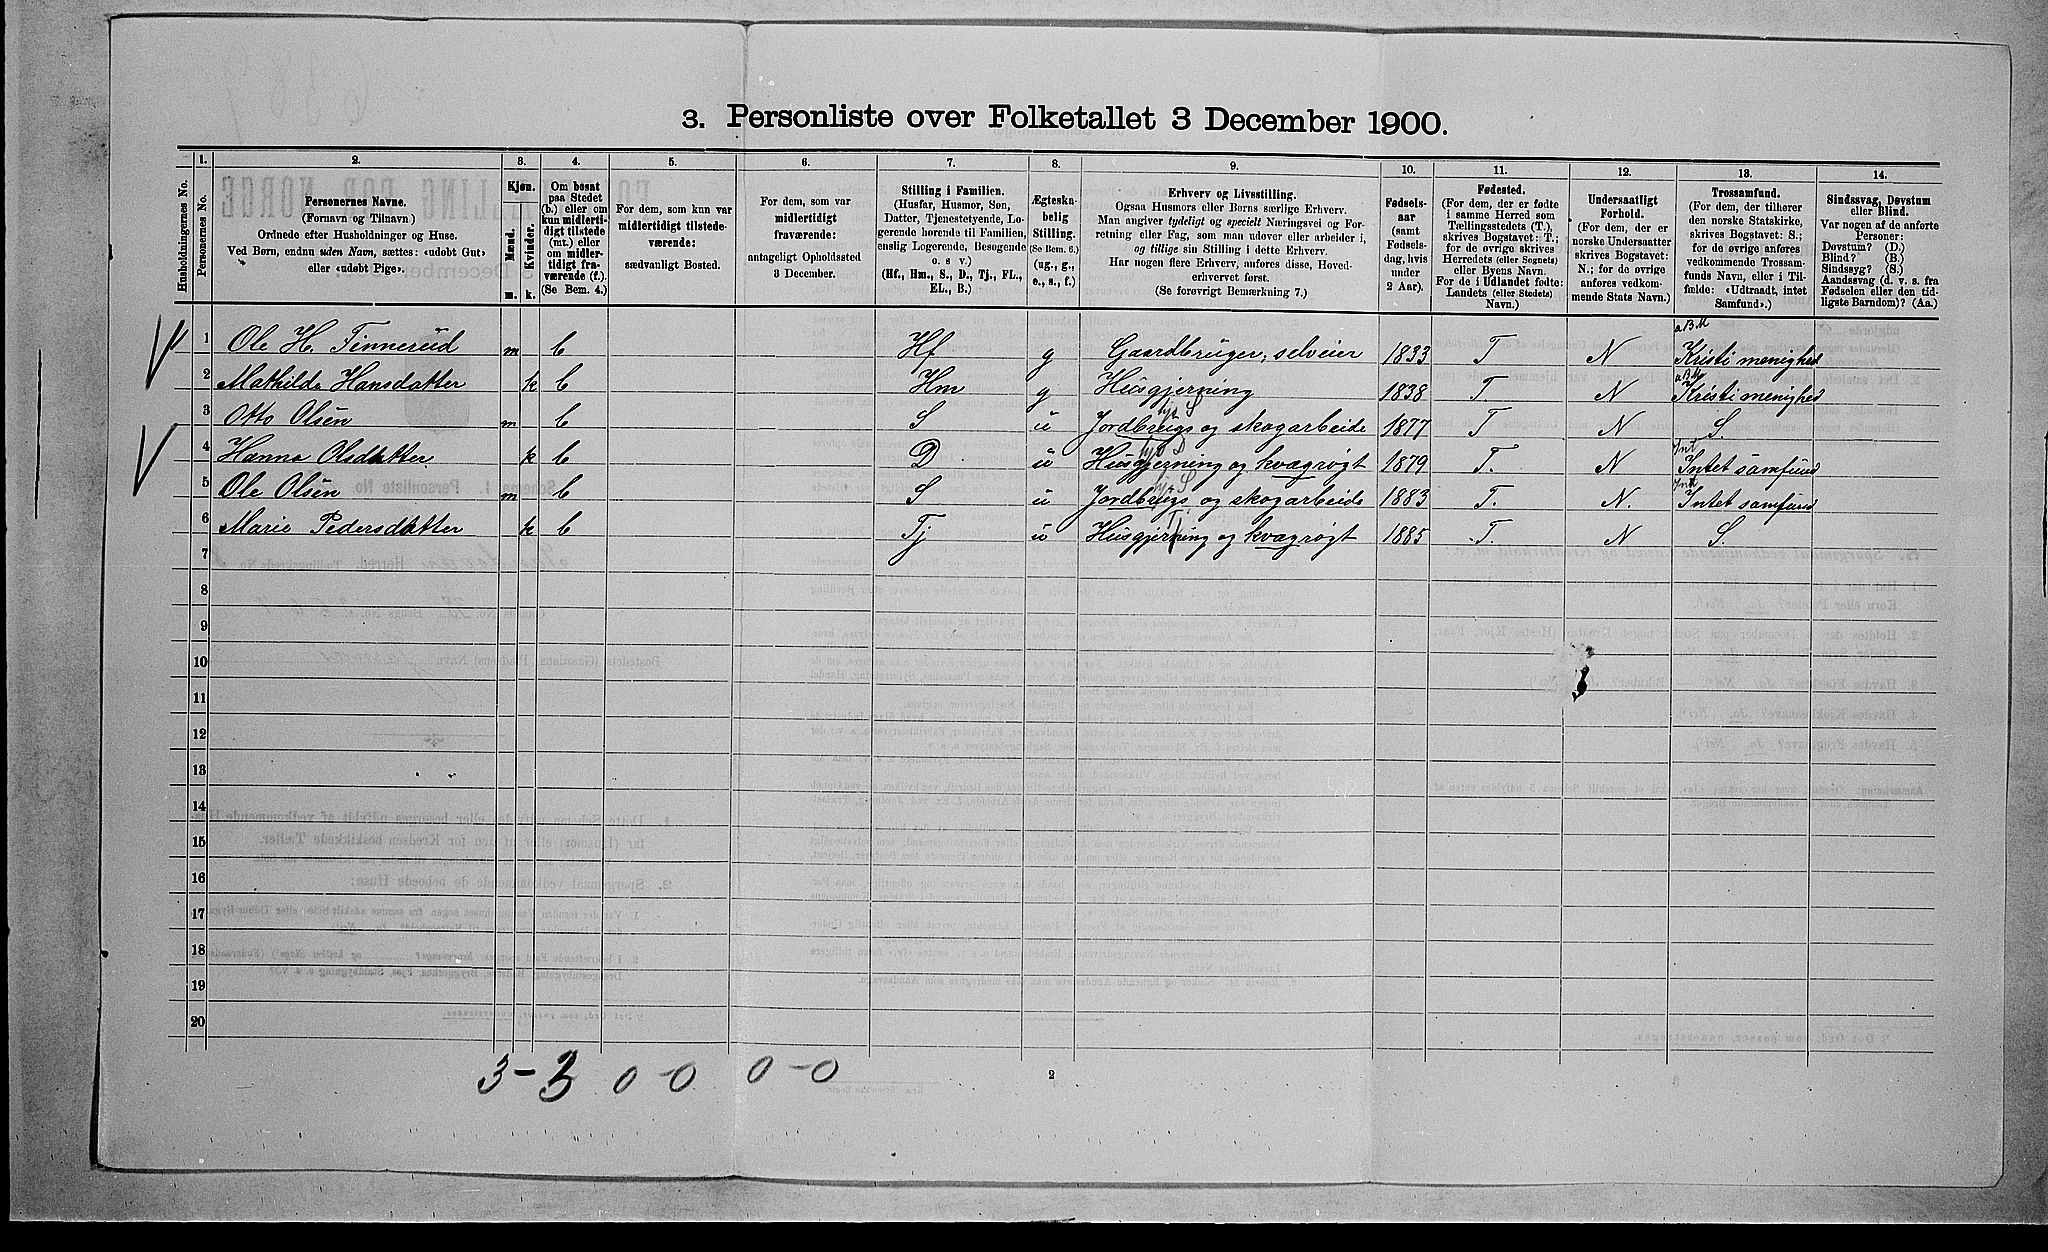 3. Personliste over Folketallet 3 December 1900.
Husholdningernes No.
1.
Personernes No.
2.
Personernes Navne.
(Fornavn og Tilnavn.)
Ordnede efter Husholdninger og Huse.
Ved Børn, endnu uden Navn, sættes: «udøbt Gut»
eller «udøbt Pige».
3.
Kjøn.
Mænd.
Kvinder.
m.
k.
4.
Om bosat
paa Stedet
(b.) eller om
kun midlerti-
digt tilstede
(mt.) eller
om midler-
tidigt fra-
værende (f.).
(Se Bem. 4.)
5.
For dem, som kun var
midlertidigt tilstede-
værende:
sædvanligt Bosted.
6.
For dem, som var
midlertidigt
fraværende:
antageligt Opholdssted
3 December.
7.
Stilling i Familien.
(Husfar, Husmor, Søn,
Datter, Tjenestetyende, Lo-
gerende hørende til Familien,
enslig Logerende, Besøgende
o. s v.)
(Hf., Hm., S., D., Tj., FL.,
EL., B.)
8.
Ægteska-
belig
Stilling.
(Se Bem. 6.)
(ug., g.,
e., s., f.)
9.
Erhverv og Livsstilling.
Ogsaa Husmors eller Børns særlige Erhverv.
Man angiver tydeligt og specielt Næringsvei og For-
retning eller Fag, som man udøver eller arbeider i,
og tillige sin Stilling i dette Erhverv.
Har nogen flere Erhverv, anføres disse, Hoved-
erhvervet først.
(Se forøvrigt Bemærkning 7.)
10.
Fødsels-
aar
(samt
Fødsels-
dag, hvis
under
2 Aar).
11.
Fødested.
(For dem, der er fødte
i samme Herred som
Tællingsstedets (T.),
skrives Bogstavet: T.;
for de øvrige skrives
Herredets (eller Sognets)
eller Byens Navn.
For de i Udlandet fødte:
Landets (eller Stedets)
Navn.)
12.
Undersaatligt
Forhold.
(For dem, der er
norske Undersaatter
skrives Bogstavet:
N.; for de øvrige
anføres vedkom-
mende Stats Navn.)
13.
Trossamfund.
(For dem, der tilhører
den norske Statskirke,
skrives Bogstavet: S.;
for de øvrige anføres
vedkommende Trossam-
funds Navn, eller i Til-
fælde: «Udtraadt, intet
Samfund».)
14.
Sindssvag, Døvstum
eller Blind.
Var nogen af de anførte
Personer:
Døvstum? (D.)
Blind? (B.)
Sindssyg? (S.)
Aandssvag (d. v. s. fra
Fødselen eller den tid-
ligste Barndom)? (Aa.)
a B M
1 Ole H. Finnerud m b Hf g Gaardbruger, selveier 1833 T N Kristi menighed
a B M
2 Mathilde Hansdatter k b Hm g Husgjerning 1838 T. N Kristi menighed
3 Otto Olsen m b S u Jordbrugs og skogarbeide 1877 T N S.
Int
4 Hanna Olsdatter k b D u Husgjerning og kvægrøgt 1879 T. N Intet samfund
Int
5 Ole Olsen m b S u Jordbrugs og skogarbeide 1883 T. N. Intet samfund
6 Marie Pedersdatter k b Tj u Husgjerning og kvægrøgt 1885 T. N S.
7
8
9
10
11
12
13
14
15
16
17
18
19
20
3 - 3 0-0 0-0
2